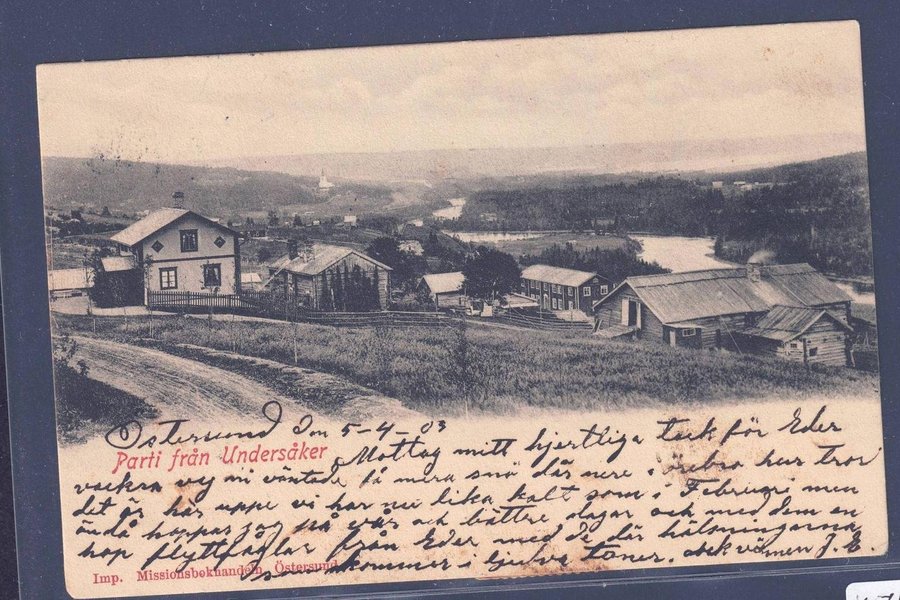 Östersund Den 5-4-03
Parti från Undersåker
Mottag mitt hjertliga tack för Eder
vackra vy ni väntade få mera snö där nere i örebro hur tror
det är här uppe vi har nu lika kalt som i Februari men
ändå hoppas jag på vår och bättre dagar och med dem en
hop flyttfåglar från Eder med de där hälsningarna
som kommer i ljufva toner. J. E.
Imp. Missionsbokhandeln, Östersund